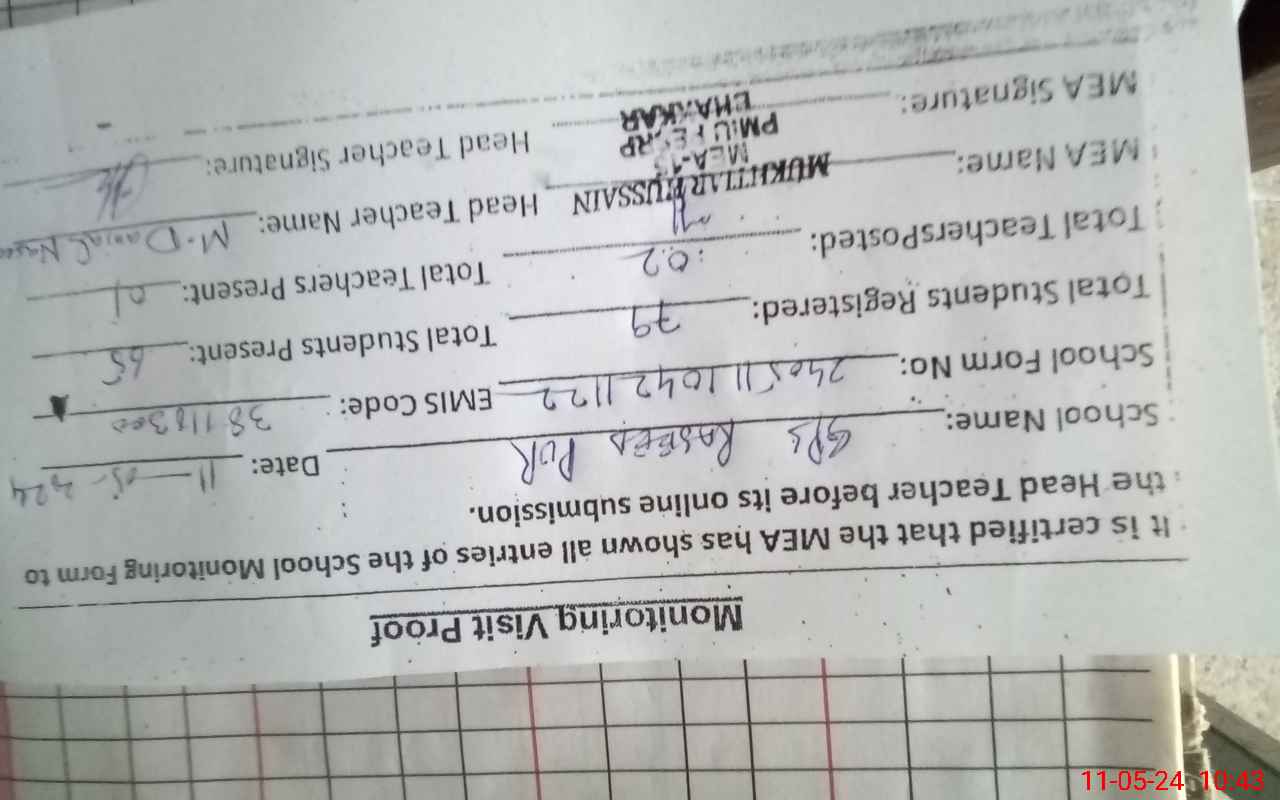 Monitoring Visit Proof
It is certified that the MEA has shown all entries of the School Monitoring Form to
the Head Teacher before its online submission.
School Name: GPS RASEED PUR Date: 11-05-2024
School Form No: 24051110421122 EMIS Code:
Total Students Registered: 79 Total Students Present: 65
Total TeachersPosted: 02 Total Teachers Present: 01
MEA Name: MUKHTIAR HUSSAIN Head Teacher Name: M. Danial
MEA-
MEA Signature: Head Teacher Signature:
11-05-24 10:43